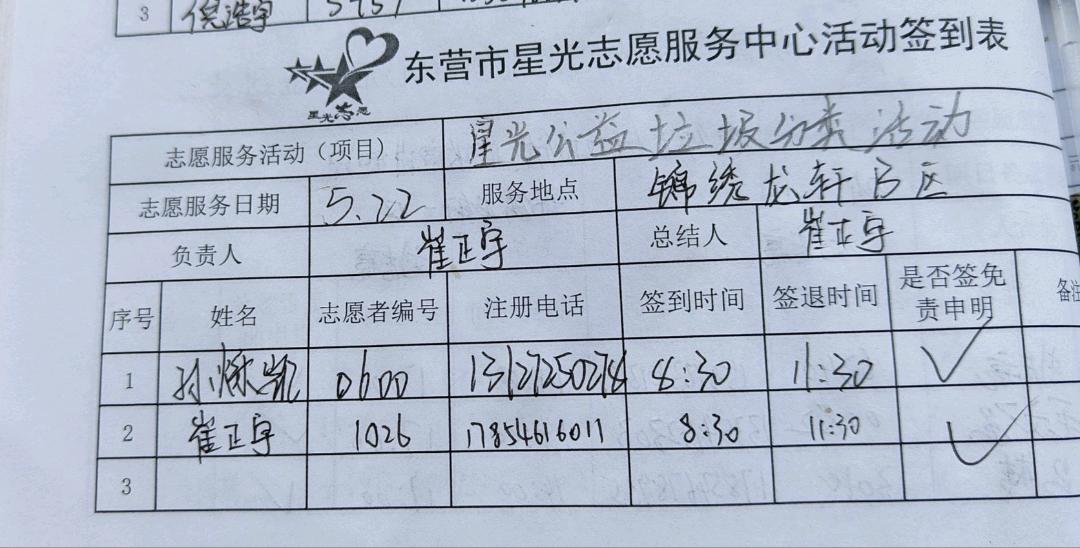 3 倪浩宇 5757
星光志愿
东营市星光志愿服务中心活动签到表
志愿服务活动（项目） 星光公益垃圾分类活动
志愿服务日期 5.22 服务地点 锦绣龙轩B区
负责人 崔正宇 总结人 崔正宇
序号 姓名 志愿者编号 注册电话 签到时间 签退时间 是否签免责申明 备注
1 孙 凯 0600 13127250278 8:30 11:30 ✓
2 崔正宇 1026 17854616011 8:30 11:30 ✓
3